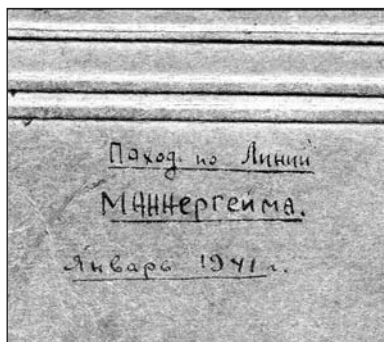 Поход по Линии
Маннергейма.
Январь 1941 г.